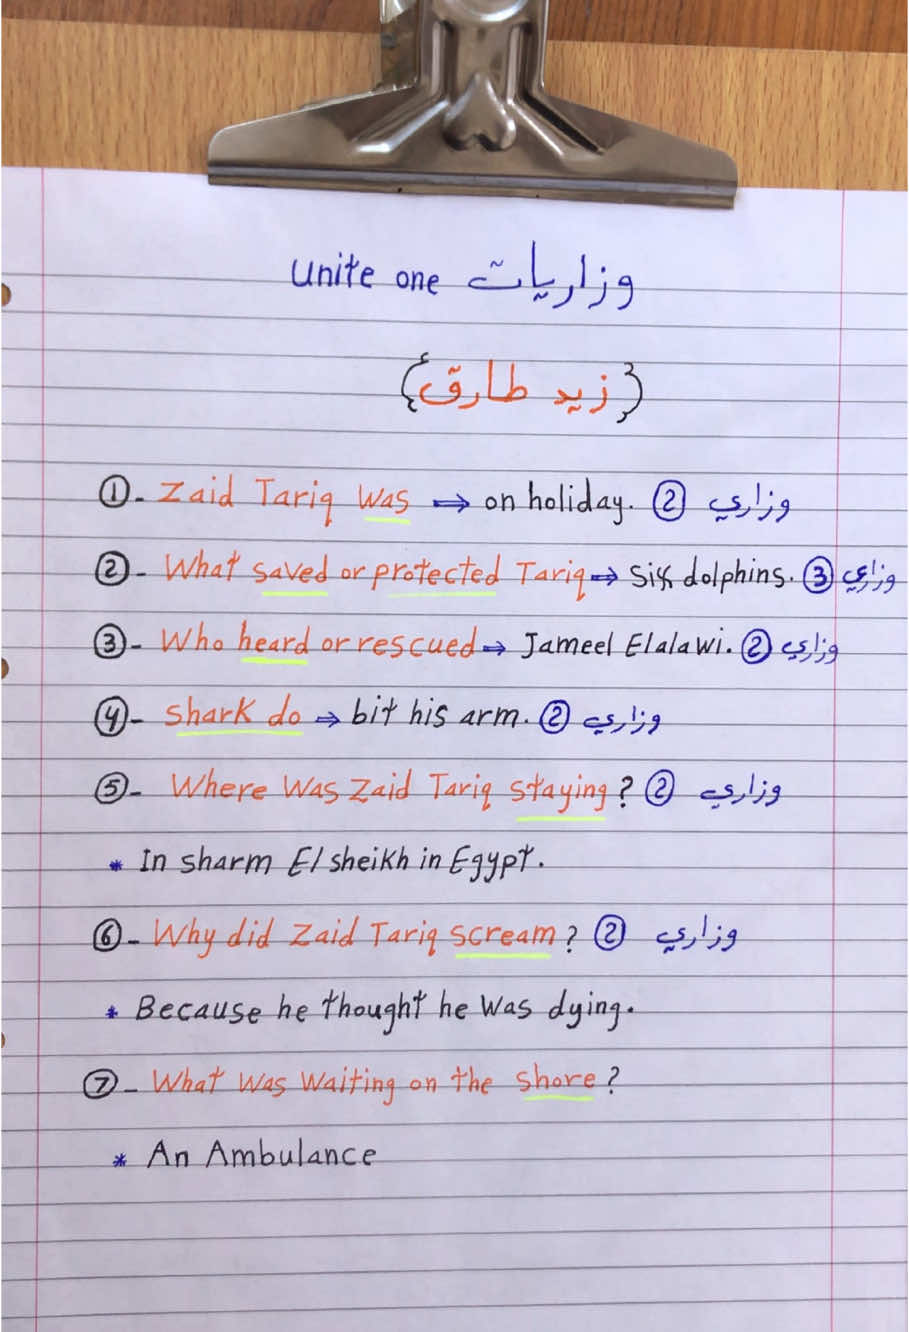 Unite one وزاريات
{زيد طارق}
①- Zaid Tariq was ⇒ on holiday. ② وزاري
②- What saved or protected Tariq ⇒ Six dolphins. ③ وزاري
③- Who heard or rescued ⇒ Jameel Elalawi. ② وزاري
④- shark do ⇒ bit his arm. ② وزاري
⑤- Where Was Zaid Tariq staying? ② وزاري
* In sharm El sheikh in Egypt.
⑥- Why did Zaid Tariq scream? ② وزاري
* Because he thought he Was dying.
⑦- What Was Waiting on the shore?
* An Ambulance